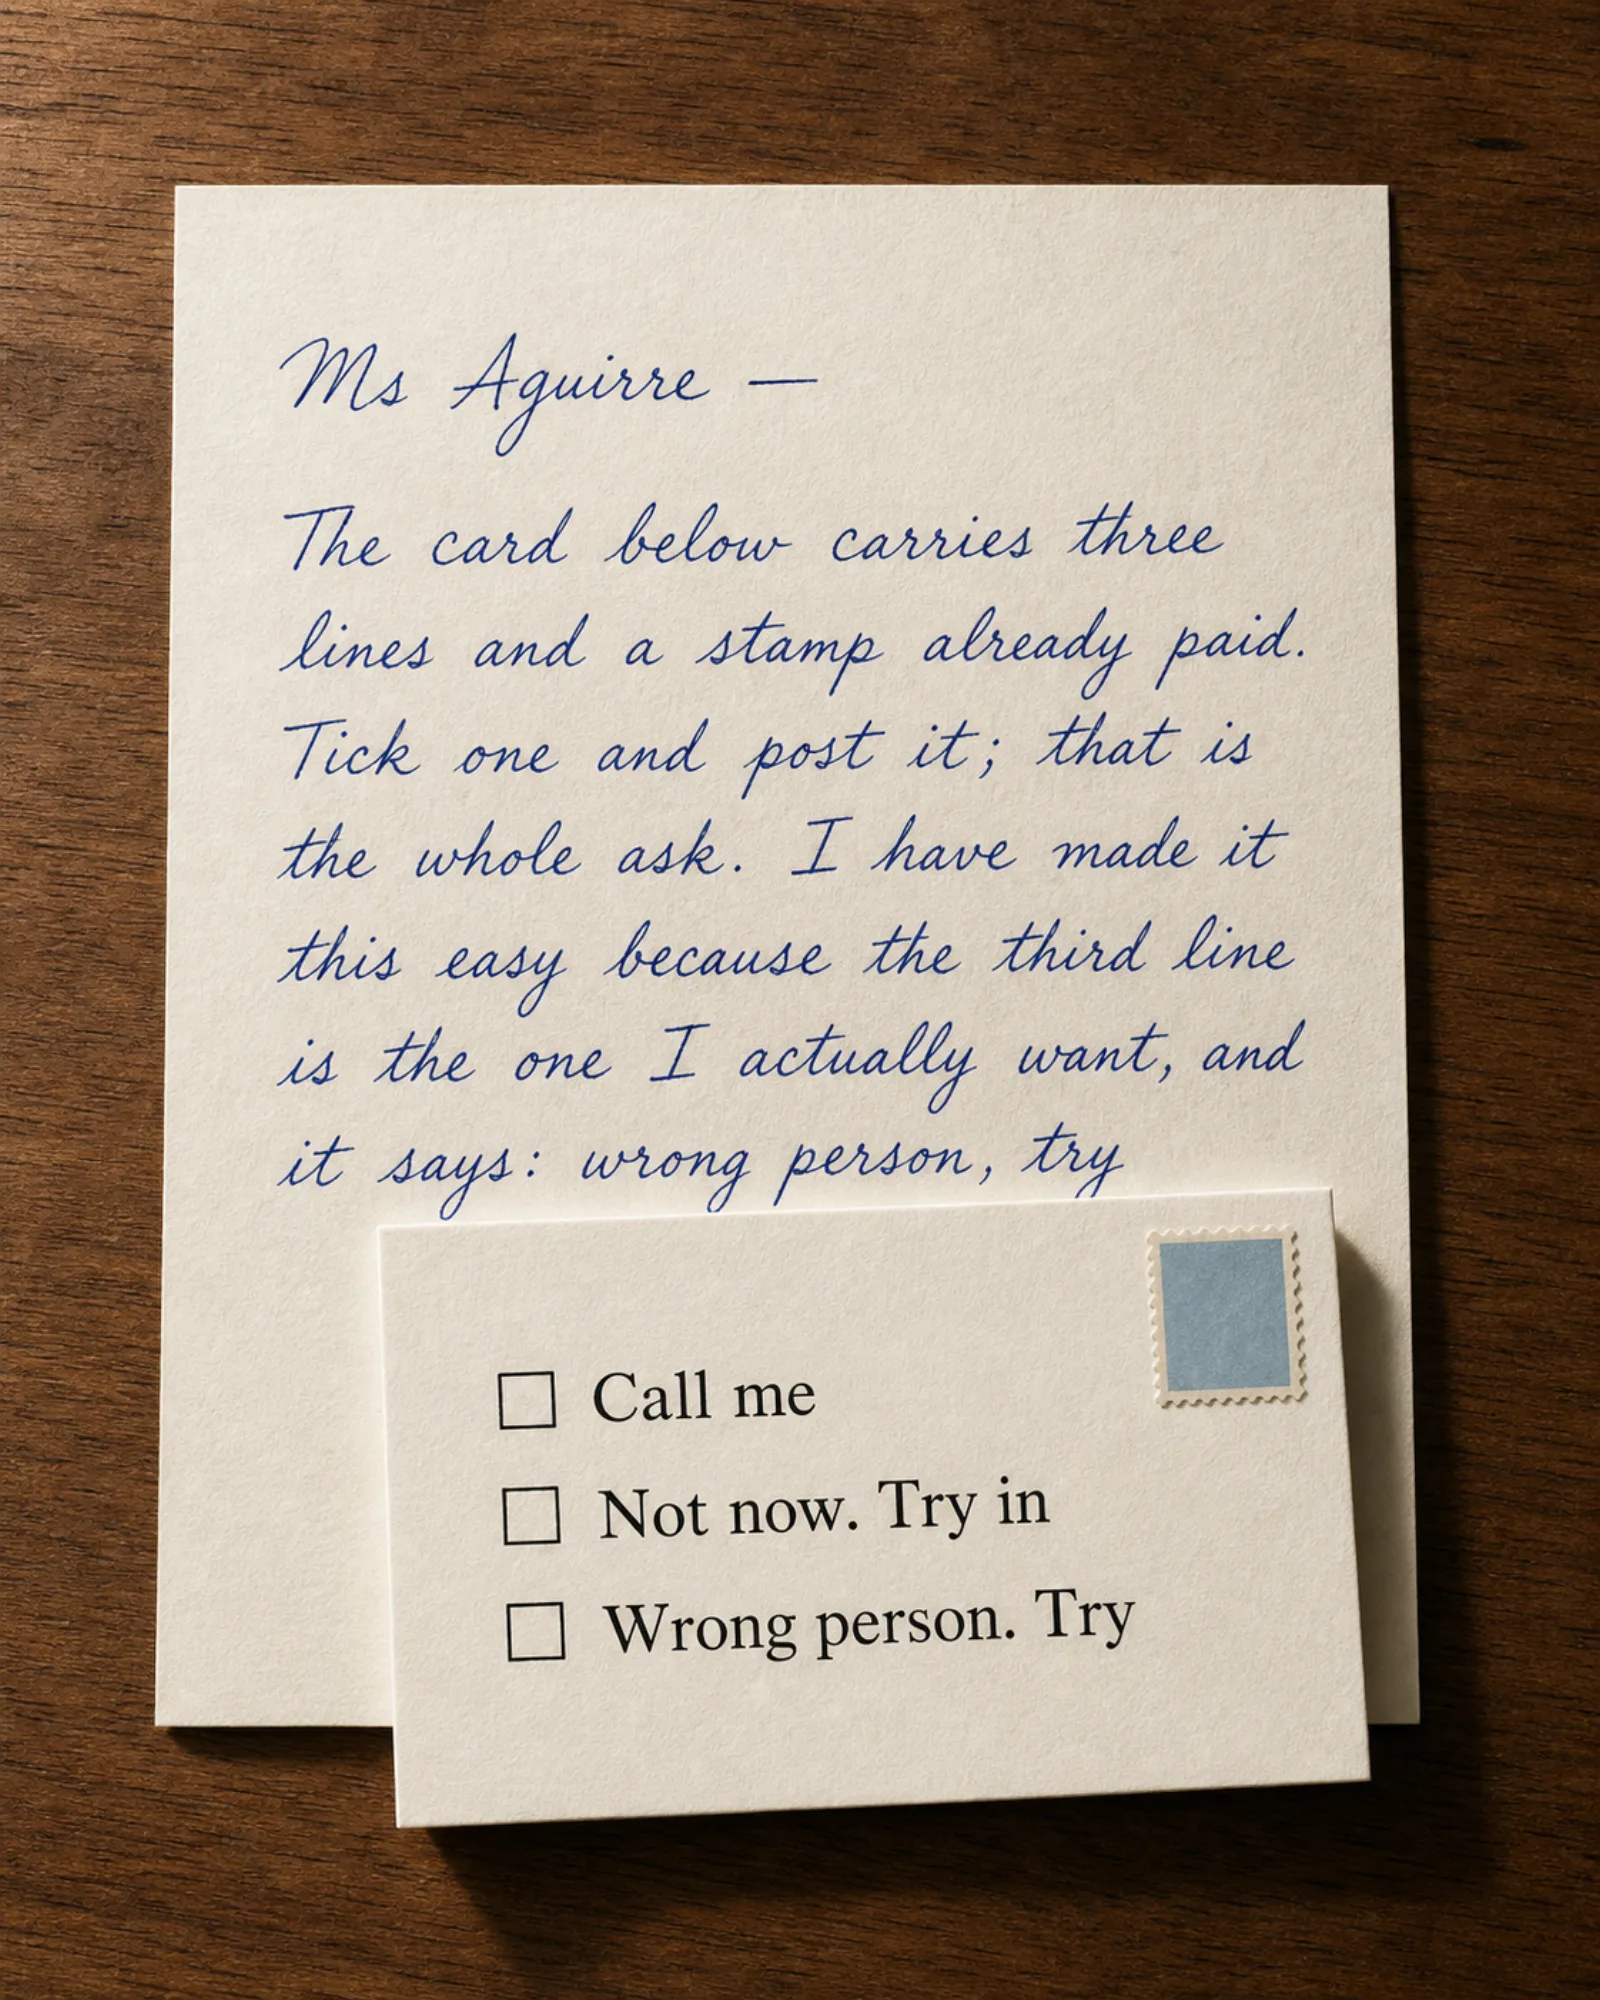 Ms Aguirre —
The card below carries three
lines and a stamp already paid.
Tick one and post it; that is
the whole ask. I have made it
this easy because the third line
is the one I actually want, and
it says: wrong person, try
Call me
Not now. Try in
Wrong person. Try